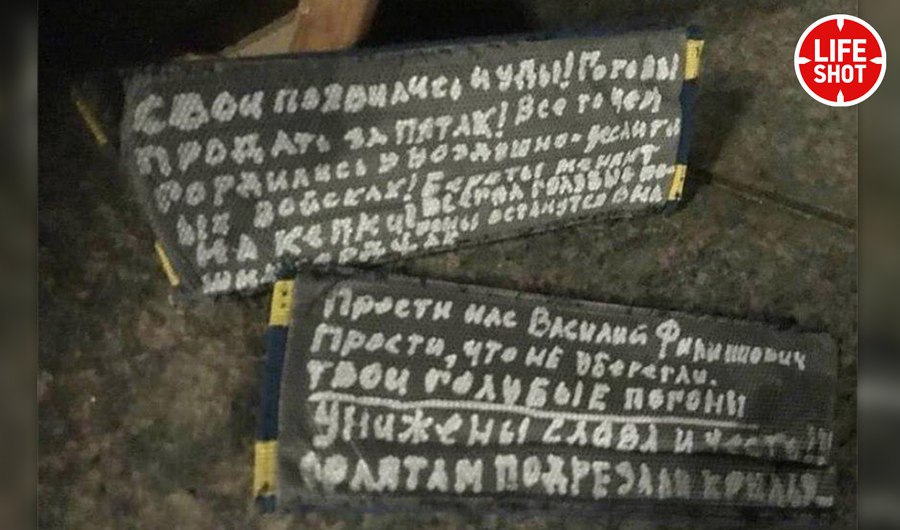 LIFE
SHOT
СВОИ ПОЯВИЛИСЬ ИУДЫ! ГОТОВЫ
ПРОДАТЬ ЗА ПЯТАК! ВСЕ ТО ЧЕМ
ГОРДИЛИСЬ В ВОЗДУШНО-ДЕСАНТН
ЫХ ВОЙСКАХ! БЕРЕТЫ МЕНЯЮТ
НА КЕПКИ! ГОЛУБЫЕ ПО-
ОСТАНУТСЯ В НА
ШИХ СЕРДЦАХ
Прости нас Василий Филиппович
Прости, что не уберегли.
ТВОИ ГОЛУБЫЕ ПОГОНЫ
УНИЖЕНЫ СЛАВА И ЧЕСТЬ!!!
ПОДРЕЗАЛИ КРЫЛЬЯ